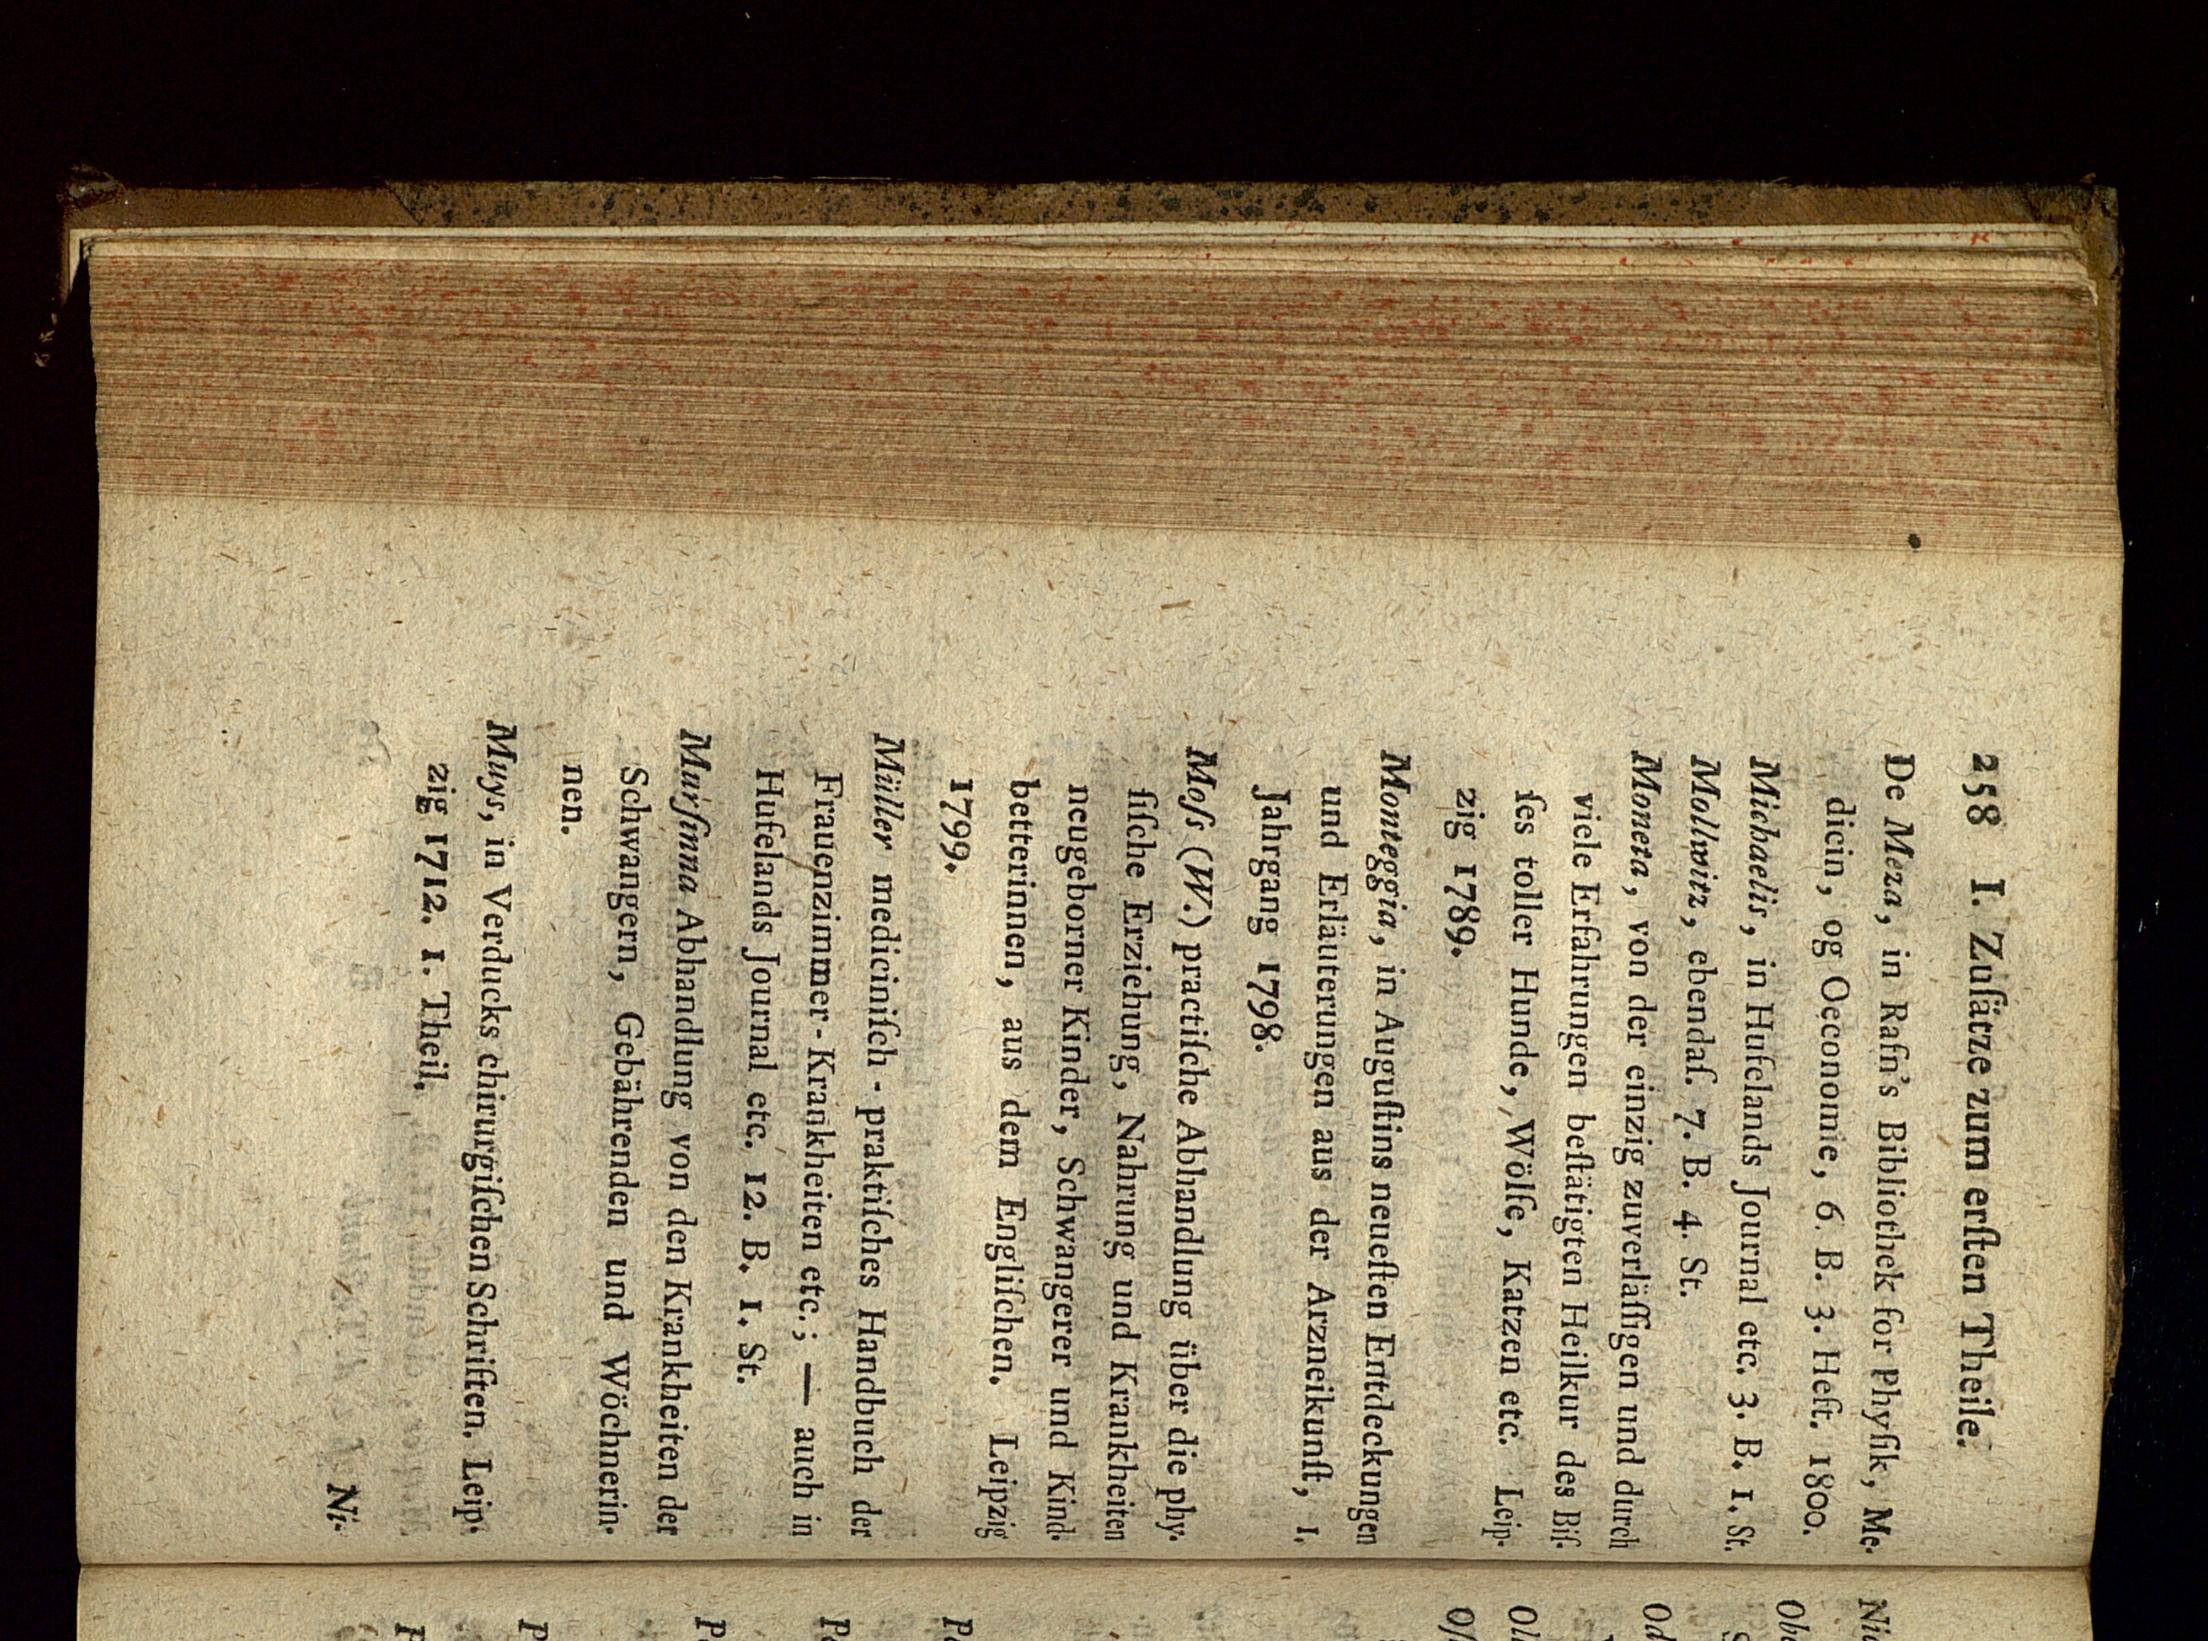 258 I. Zuſätze zum erſten Theile.
De Meza, in Rafn's Bibliothek for Phyſik, Me-
dicin, og Oeconomie, 6. B. 3. Heft. 1800.
Michaelis, in Hufelands Journal etc. 3. B. 1. St.
Mollwitz, ebendaſ. 7. B. 4. St.
Moneta, von der einzig zuverläſſigen und durch
viele Erfahrungen beſtätigten Heilkur des Biſ-
ſes toller Hunde, Wölfe, Katzen etc. Leip-
zig 1789.
Monteggia, in Auguſtins neueſten Entdeckungen
und Erläuterungen aus der Arzneikunſt, 1.
Jahrgang 1798.
Moſs (W.) practiſche Abhandlung über die phy-
ſiſche Erziehung, Nahrung und Krankheiten
neugeborner Kinder, Schwangerer und Kind-
betterinnen, aus dem Engliſchen. Leipzig
1799.
Müller mediciniſch-praktiſches Handbuch der
Frauenzimmer-Krankheiten etc.; — auch in
Hufelands Journal etc. 12. B. 1. St.
Murſinna Abhandlung von den Krankheiten der
Schwangern, Gebährenden und Wöchnerin-
nen.
Muys, in Verducks chirurgiſchen Schriften. Leip-
zig 1712. 1. Theil.
Ni-